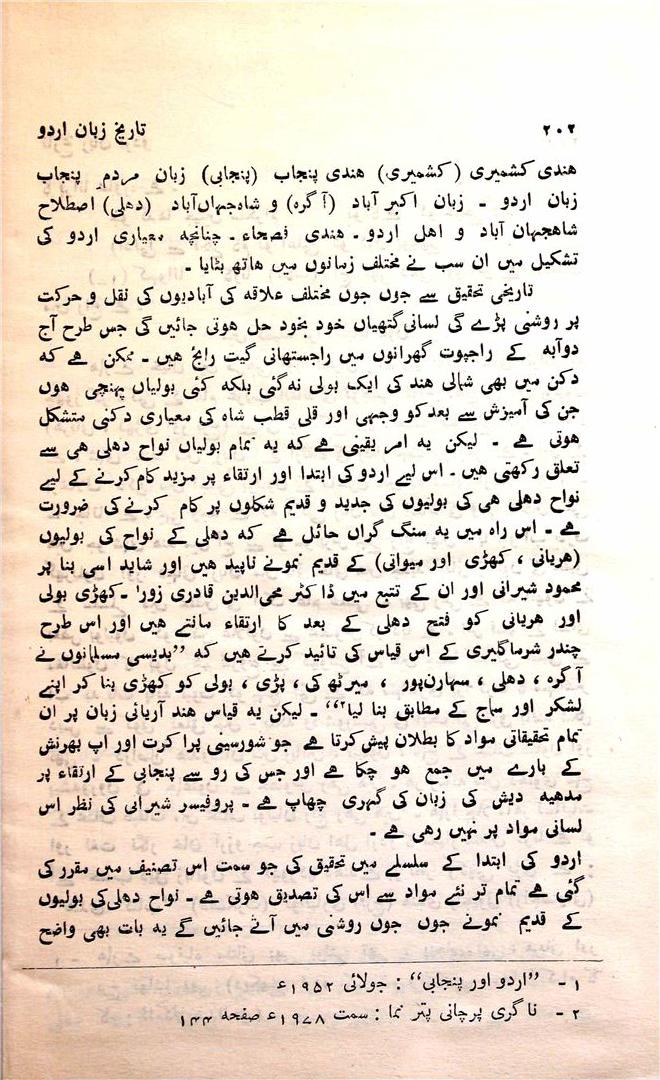 ۲۰۲ تاریخ زبان اردو
ھندی کشمیری (کشمیری) ھندی پنجاب (پنجابی) زبان مردم پنجاب
زبان اردو ۔ زبان اکبر آباد (آگرہ) و شاہجہاں‌آباد (دھلی) اصطلاح
شاھجہان آباد و اھل اردو ۔ ھندی فصحاء ۔ چنانچہ معیاری اردو کی
تشکیل میں ان سب نے مختلف زمانوں میں ھاتھ بٹایا ۔
تاریخی تحقیق سے جوں جوں مختلف علاقہ کی آبادیوں کی نقل و حرکت
پر روشنی پڑے گی لسانی گتھیاں خود بخود حل ھوتی جائیں گی جس طرح آج
دوآبہ کے راجپوت گھرانوں میں راجستھانی گیت رائج ھیں ۔ ممکن ھے کہ
دکن میں بھی شمالی ھند کی ایک بولی نہ گئی بلکہ کئی بولیاں پہنچی ھوں
جن کی آمیزش سے بعد کو وجہی اور قلی قطب شاہ کی معیاری دکنی متشکل
ھوتی ھے ۔ لیکن یہ امر یقینی ھے کہ یہ تمام بولیاں نواح دھلی ھی سے
تعلق رکھتی ھیں ۔ اس لیے اردو کی ابتدا اور ارتقاء پر مزید کام کرنے کے لیے
نواح دھلی ھی کی بولیوں کی جدید و قدیم شکلوں پر کام کرنے کی ضرورت
ھے ۔ اس راہ میں یہ سنگ گراں حائل ھے کہ دھلی کے نواح کی بولیوں
(ھریانی ، کھڑی اور میواتی) کے قدیم نمونے ناپید ھیں اور شاید اسی بنا پر
محمود شیرانی اور ان کے تتبع میں ڈاکٹر محی‌الدین قادری زور۱ ۔ کھڑی بولی
اور ھریانی کو فتح دھلی کے بعد کا ارتقاء مانتے ھیں اور اس طرح
چندر شرما گلیری کے اس قیاس کی تائید کرتے ھیں کہ ’’بدیسی مسلمانوں نے
آگرہ ، دھلی ، سہارن‌پور ، میرٹھ کی ، پڑی ، بولی کو کھڑی بنا کر اپنے
لشکر اور سماج کے مطابق بنا لیا۲‘‘ ۔ لیکن یہ قیاس ھند آریائی زبان پر ان
تمام تحقیقاتی مواد کا بطلان پیش کرتا ھے جو شورسینی پراکرت اور اپ بھرنش
کے بارے میں جمع ھو چکا ھے اور جس کی رو سے پنجابی کے ارتقاء پر
مدھیہ دیش کی زبان کی گہری چھاپ ھے ۔ پروفیسر شیرانی کی نظر اس
لسانی مواد پر نہیں رھی ھے ۔
اردو کی ابتدا کے سلسلے میں تحقیق کی جو سمت اس تصنیف میں مقرر کی
گئی ھے تمام تر نئے مواد سے اس کی تصدیق ھوتی ھے ۔ نواح دھلی کی بولیوں
کے قدیم نمونے جوں جوں روشنی میں آتے جائیں گے یہ بات بھی واضح
۱ ۔ ’’اردو اور پنجابی‘‘ : جولائی ۱۹۵۲ء
۲ ۔ ناگری پرچانی پتر نما : سمت ۱۹۷۸ء صفحہ ۱۴۴